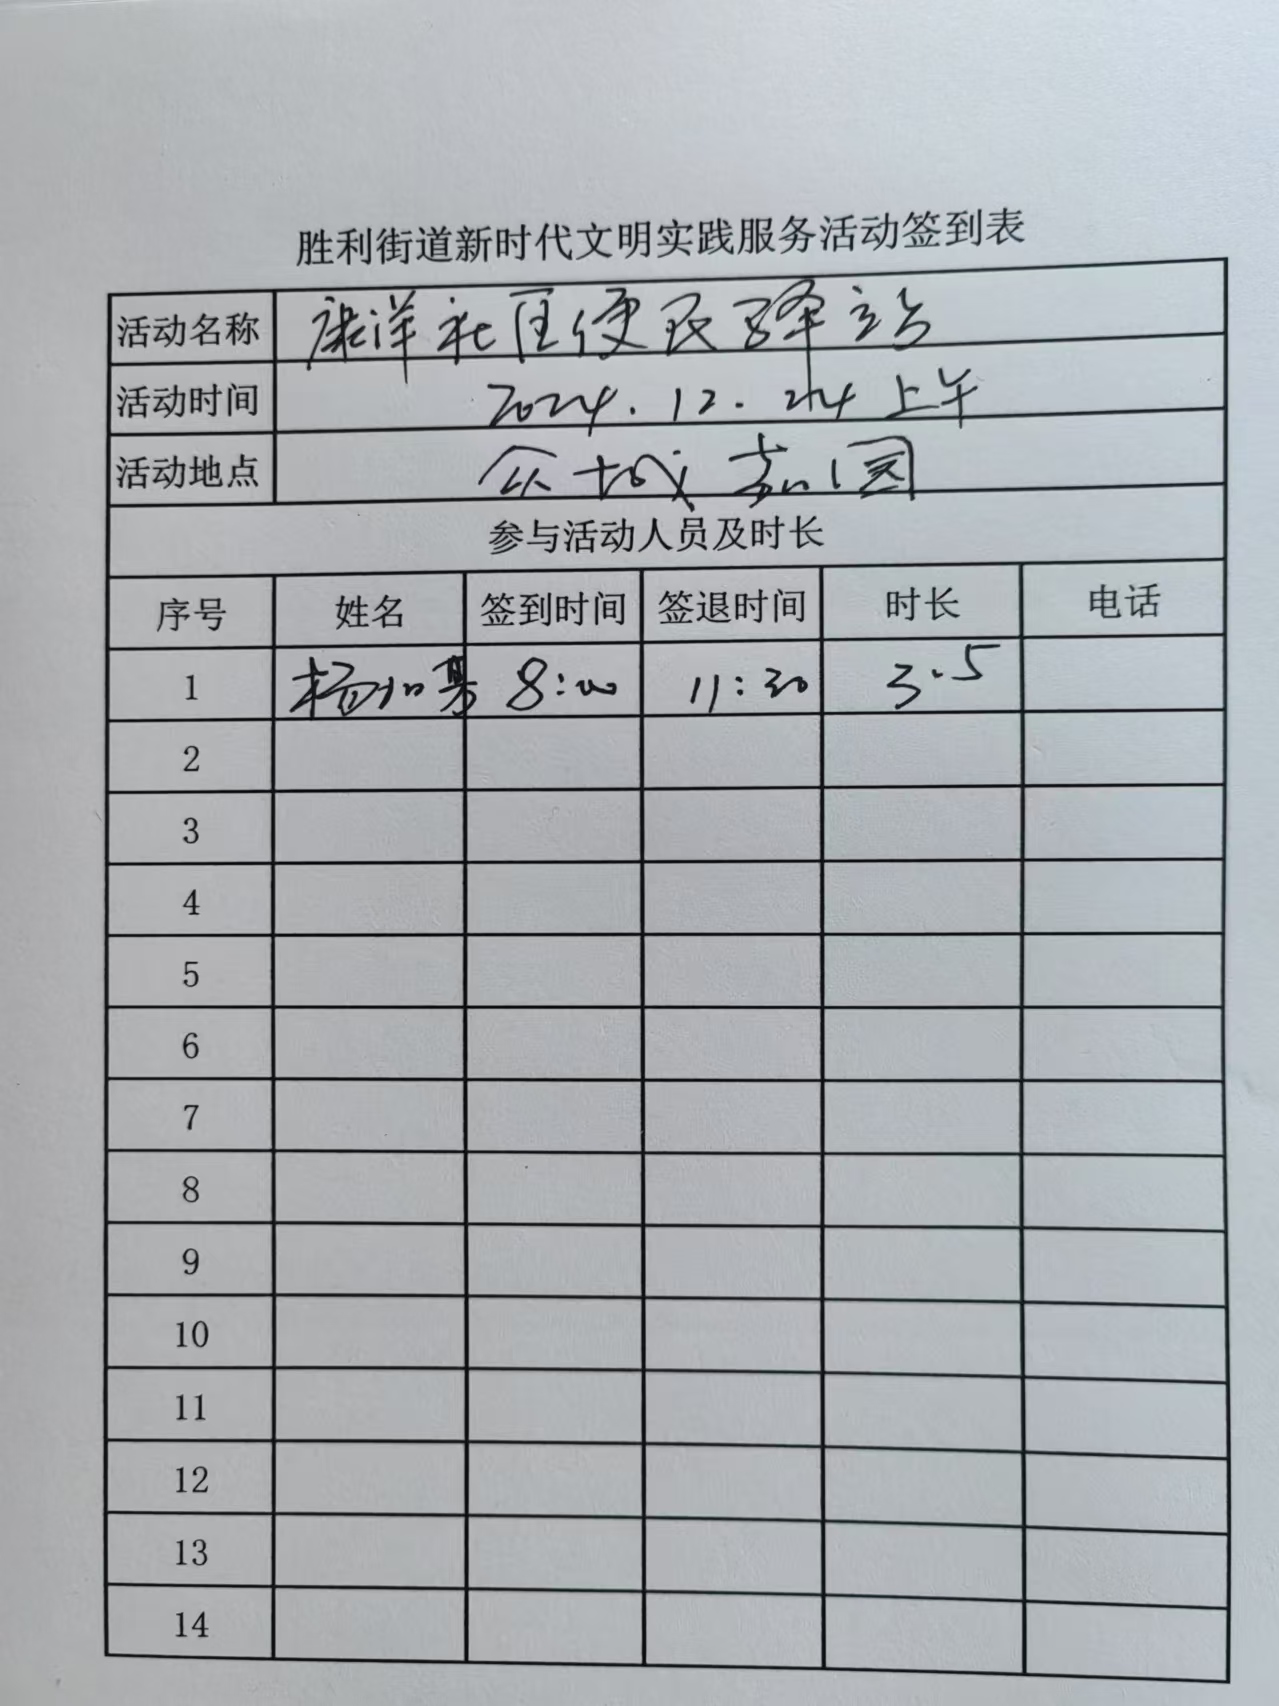 胜利街道新时代文明实践服务活动签到表
活动名称 康洋社区便民驿站
活动时间 2024.12.24上午
活动地点 众城嘉园
参与活动人员及时长
序号 姓名 签到时间 签退时间 时长 电话
1 杨 8:00 11:30 3.5
2
3
4
5
6
7
8
9
10
11
12
13
14